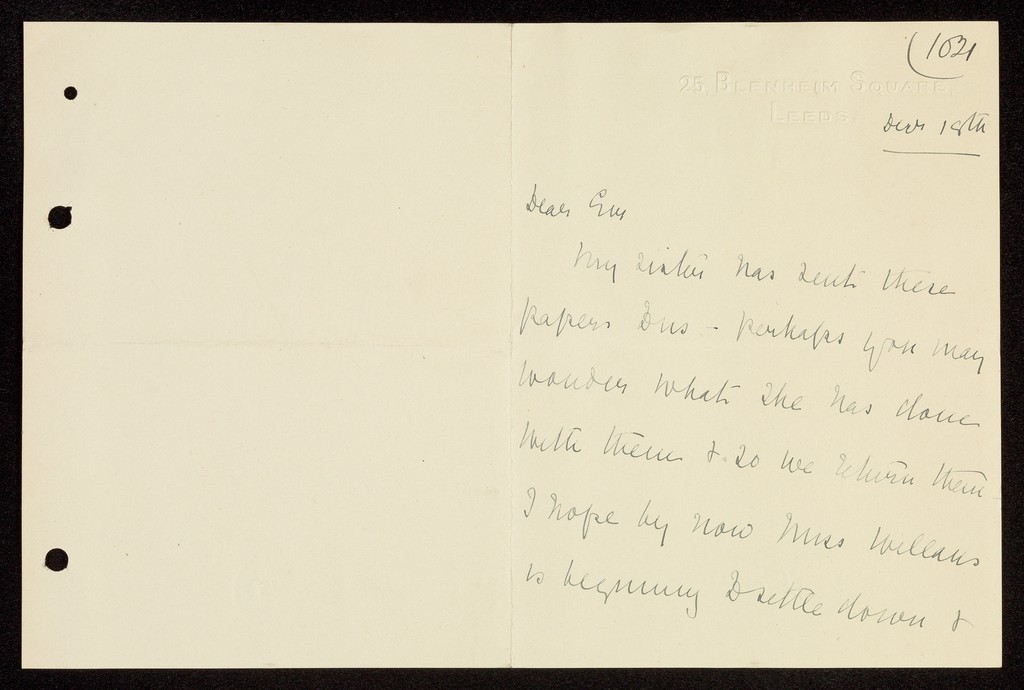 (1021
25, BLENHEIM SQUARE,
LEEDS.
Decr 18th
Dear Sir
My sister has sent these
papers to us - perhaps you may
wonder what she has done
with them & so we return them -
I hope by now Miss Willans
is beginning to settle down &